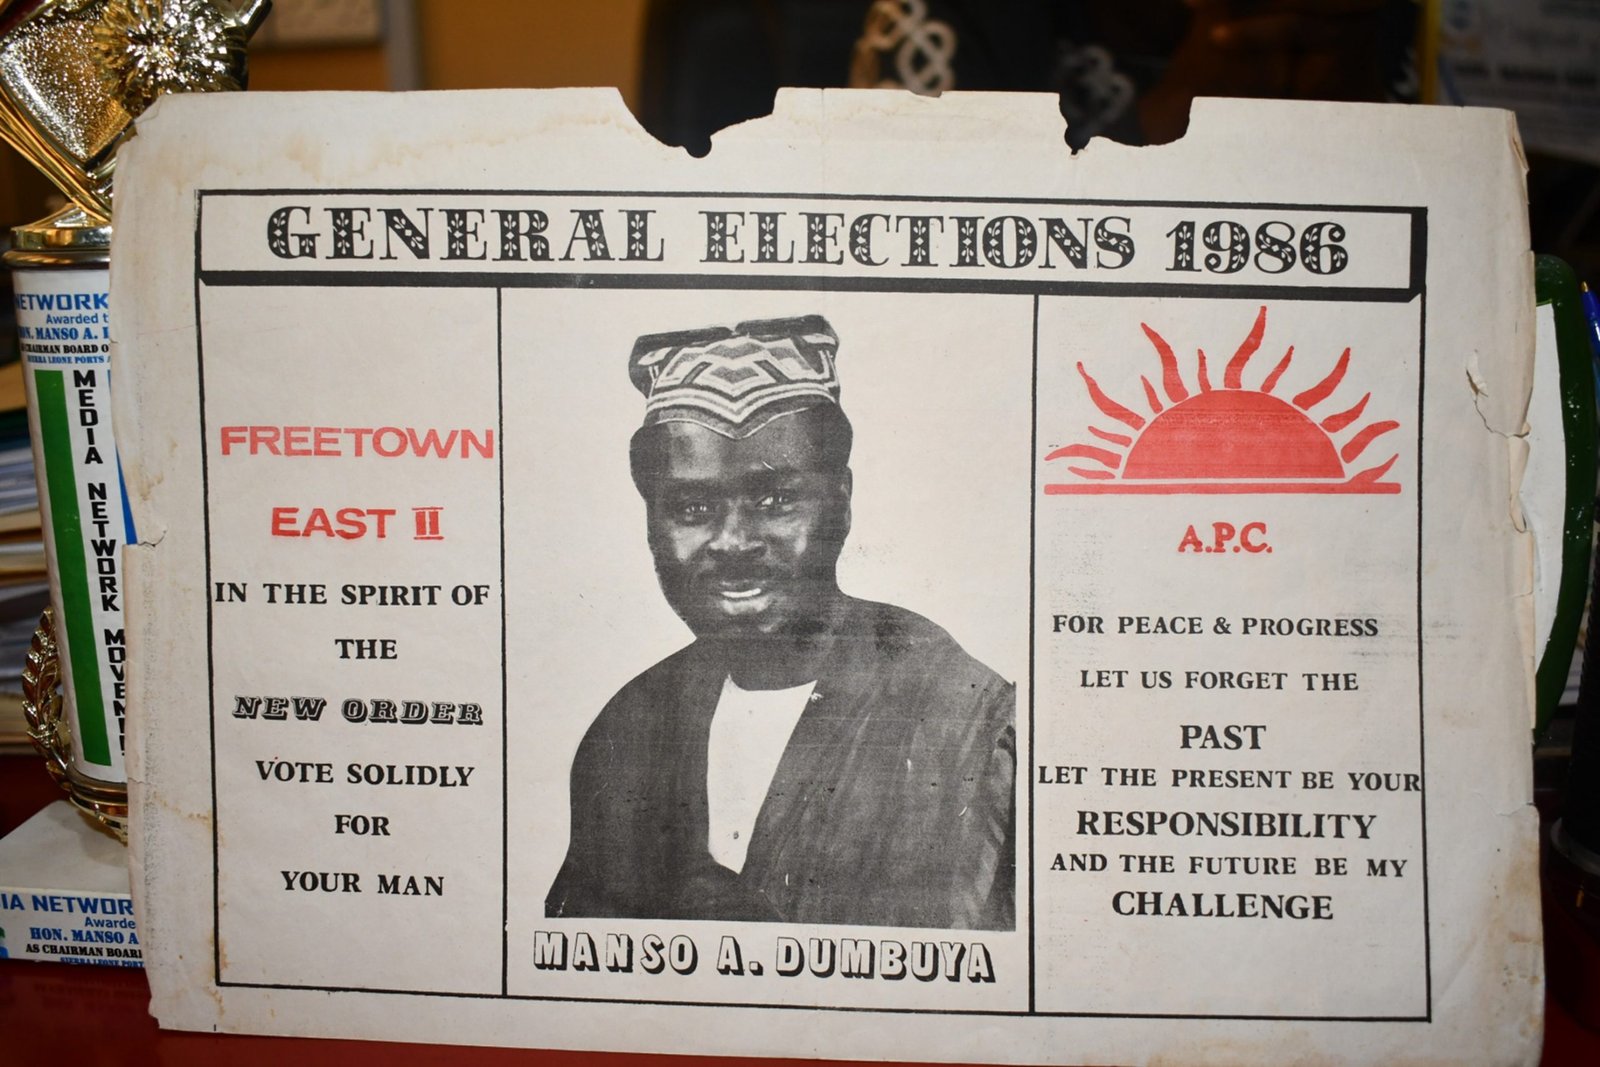 GENERAL ELECTIONS 1986
FREETOWN
EAST II
IN THE SPIRIT OF
THE
NEW ORDER
VOTE SOLIDLY
FOR
YOUR MAN
MANSO A. DUMBUYA
A.P.C.
FOR PEACE & PROGRESS
LET US FORGET THE
PAST
LET THE PRESENT BE YOUR
RESPONSIBILITY
AND THE FUTURE BE MY
CHALLENGE
NETWORK
Awarded
HON. MANSO A.
AS CHAIRMAN BOARD
SIERRA LEONE PORTS
MEDIA NETWORK MOVEMENT
IA NETWOR
Awarde
HON. MANSO A
AS CHAIRMAN BOARD
SIERRA LEONE PORT